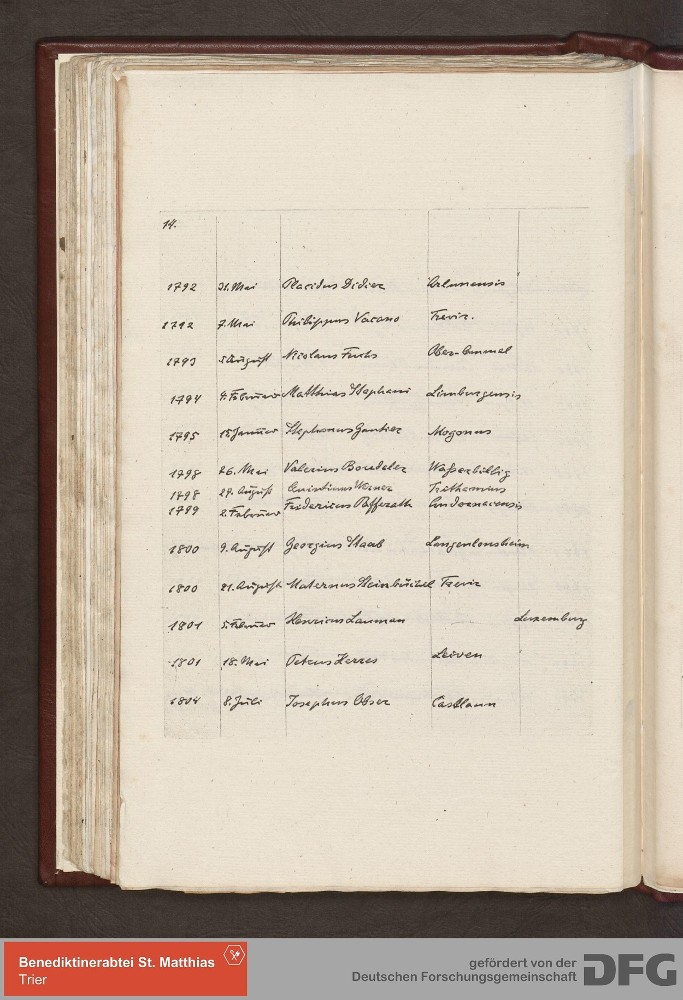 14.
1792 31. Mai Placidus Didier Arlunensis
1792 7. Mai Philippus Vacano Trevir.
1793 5. August Nicolaus Fuchs Ober-Emmel
1794 9. Februar Matthias Stephani Limburgensis
1795 15 Januar Stephanus Gautier Mogonus
1798 26. Mai Valerius Boudeler Wasserbillig
1798 29. August Quintinus Werner
1799 2. Februar Fredericus Pafferath Andernacensis
1800 9. August Georgius Staab Langenlonsheim
1800 21. August Maternus Steinbüchel Trevir
1801 5. Februar Henricus Lauman Luxemburg
1801 18. Mai Petrus Herres Leiven
1804 8. Juli Josephus Obser Castlaun
Benediktinerabtei St. Matthias
Trier
gefördert von der
Deutschen Forschungsgemeinschaft DFG